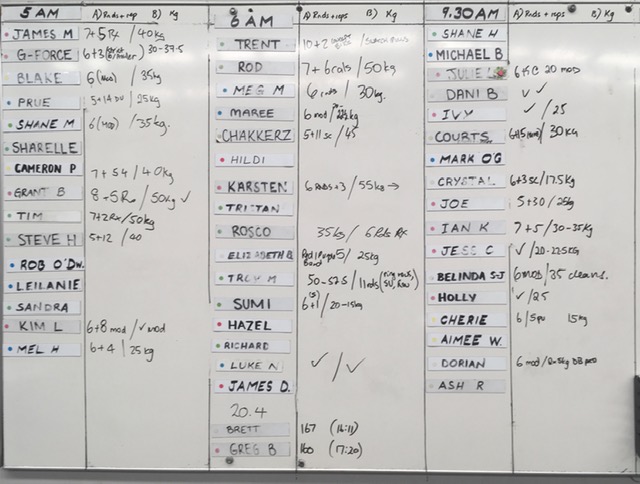 5 AM A) Rnds + rep B) Kg
JAMES M 7+5 Rx / 40kg
G-FORCE 6+3 30-37.5
BLAKE 6 (mod) / 35kg
PRUE 5+14 DU / 25kg
SHANE M 6 (mod) / 35kg.
SHARELLE
CAMERON P 7+54 / 40kg
GRANT B 8+5 Rx / 50kg ✓
TIM 7+2 Rx / 50kg
STEVE H 5+12 / 40
ROB O'DW.
LEILANIE
SANDRA
KIM L 6+8 mod / ✓ mod
MEL H 6+4 / 25kg
6 AM A) Rnds + reps B) Kg
TRENT 10+2
ROD 7+6cals / 50kg
MEG M 6 rnds / 30kg.
MAREE 6 mod / 22.5kg
CHAKKERZ 5+11 sc / 45
HILDI
KARSTEN 6 Rnds+3 / 55kg →
TRISTAN
ROSCO 35kg / 6 Rds Rx
ELIZABETH B 5 / 25kg
TROY M 50-57.5 / 11 rds (ring rows, SU, Row)
SUMI 6+1 (s) / 20-15kg
HAZEL
RICHARD
LUKE N ✓ / ✓
JAMES D.
20.4
BRETT 167 (16:11)
GREG B 160 (17:20)
9.30AM A) Rnds + reps B) Kg
SHANE H
MICHAEL B
JULIE 6 KC 20 mod
DANI B ✓ ✓
IVY ✓ / 25
COURTS / 30KG
MARK O'G
CRYSTAL 6+3 sc / 17.5kg
JOE 5+30 / 25kg
IAN K 7+5 / 30-35kg
JESS C ✓ / 20-22.5KG
BELINDA S-J 6 mod / 35 cleans.
HOLLY ✓ / 25
CHERIE 6 / 5pu 15kg
AIMEE W.
DORIAN 6 mod / DB
ASH R